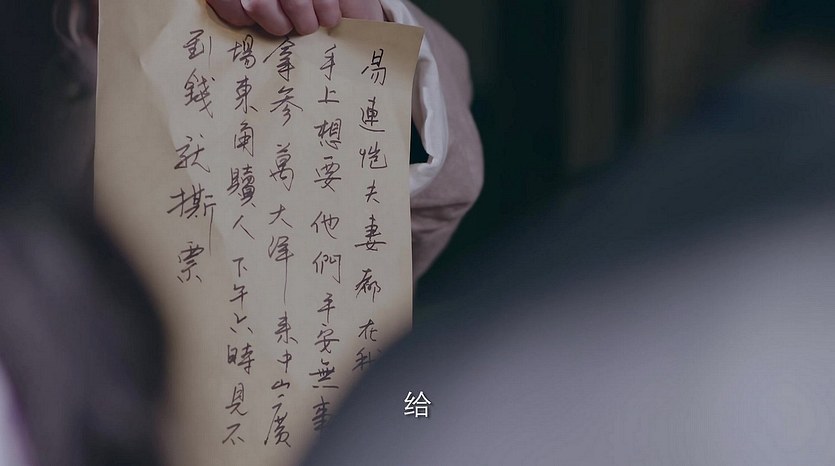 易連愷夫妻都在我
手上想要他們平安無事
拿参萬大洋来中山廣
場東角贖人下午六時見不
到錢就撕票
给